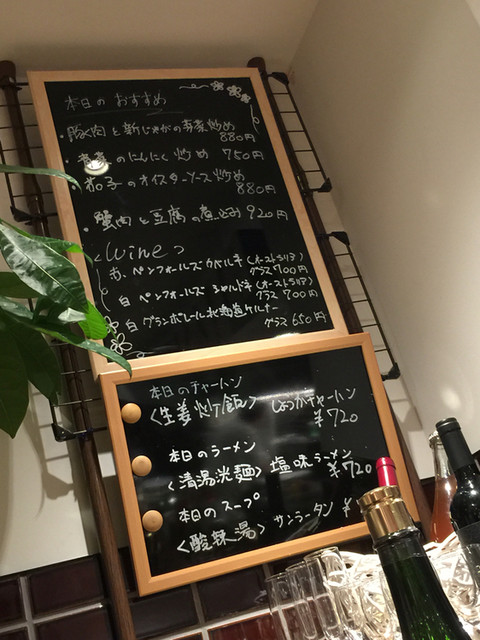 本日のおすすめ
・豚肉と新じゃがの芽菜炒め
880円
・青菜のにんにく炒め 750円
茄子のオイスターソース炒め
880円
・蟹肉と豆腐の煮込み 920円
〈wine〉
赤 ペンフォールズカベルネ(オーストラリア)
グラス700円
白 ペンフォールズ シャルドネ(オーストラリア)
グラス700円
白 グランポレール北海道ケルナー
グラス650円
本日のチャーハン
〈生姜炒飯〉 しょうがチャーハン
¥720
本日のラーメン
〈清湯光麺〉 塩味ラーメン
¥720
本日のスープ
〈酸辣湯〉 サンラータン ¥